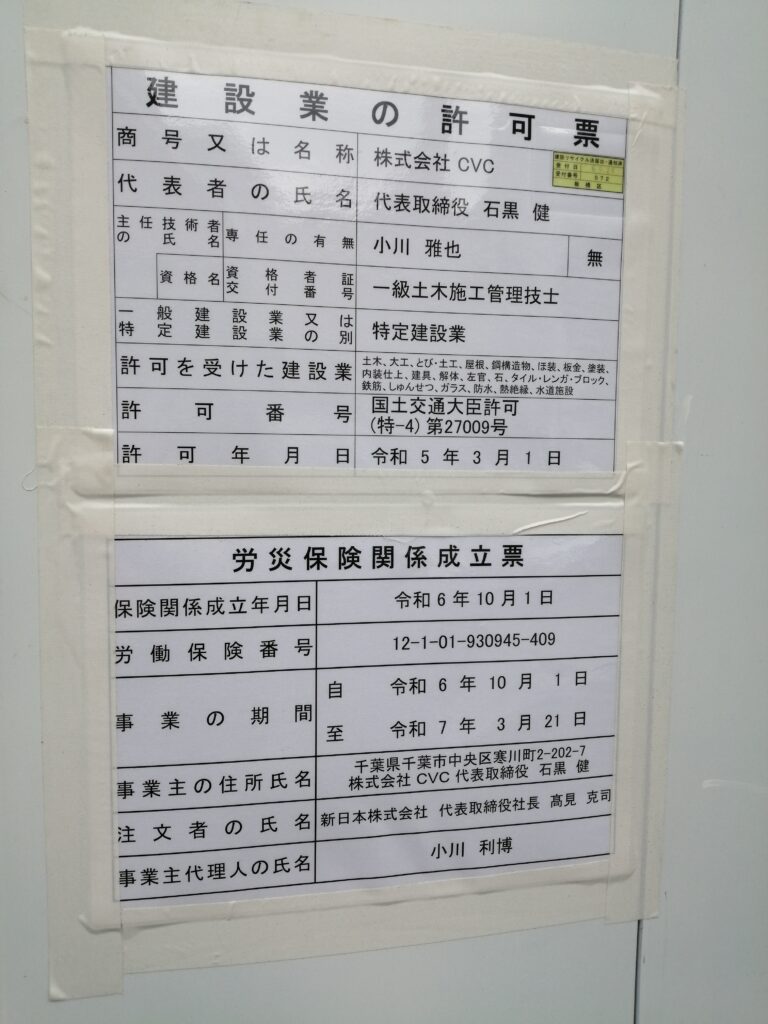 建設業の許可票
商号又は名称 株式会社 CVC
建設リサイクル法届出・通知済
受付日
受付番号 572
板橋区
代表者の氏名 代表取締役 石黒 健
主任技術者の氏名 専任の有無 小川 雅也 無
資格名 資格者証交付番号 一級土木施工管理技士
一般建設業又は
特定建設業の別 特定建設業
許可を受けた建設業 土木、大工、とび・土工、屋根、鋼構造物、ほ装、板金、塗装、
内装仕上、建具、解体、左官、石、タイル・レンガ・ブロック、
鉄筋、しゅんせつ、ガラス、防水、熱絶縁、水道施設
許可番号 国土交通大臣許可
(特-4) 第27009号
許可年月日 令和 5 年 3 月 1 日
労災保険関係成立票
保険関係成立年月日 令和 6 年 10 月 1 日
労働保険番号 12-1-01-930945-409
事業の期間 自 令和 6 年 10 月 1 日
至 令和 7 年 3 月 21 日
事業主の住所氏名 千葉県千葉市中央区寒川町2-202-7
株式会社 CVC 代表取締役 石黒 健
注文者の氏名 新日本株式会社 代表取締役社長 髙見 克司
事業主代理人の氏名 小川 利博